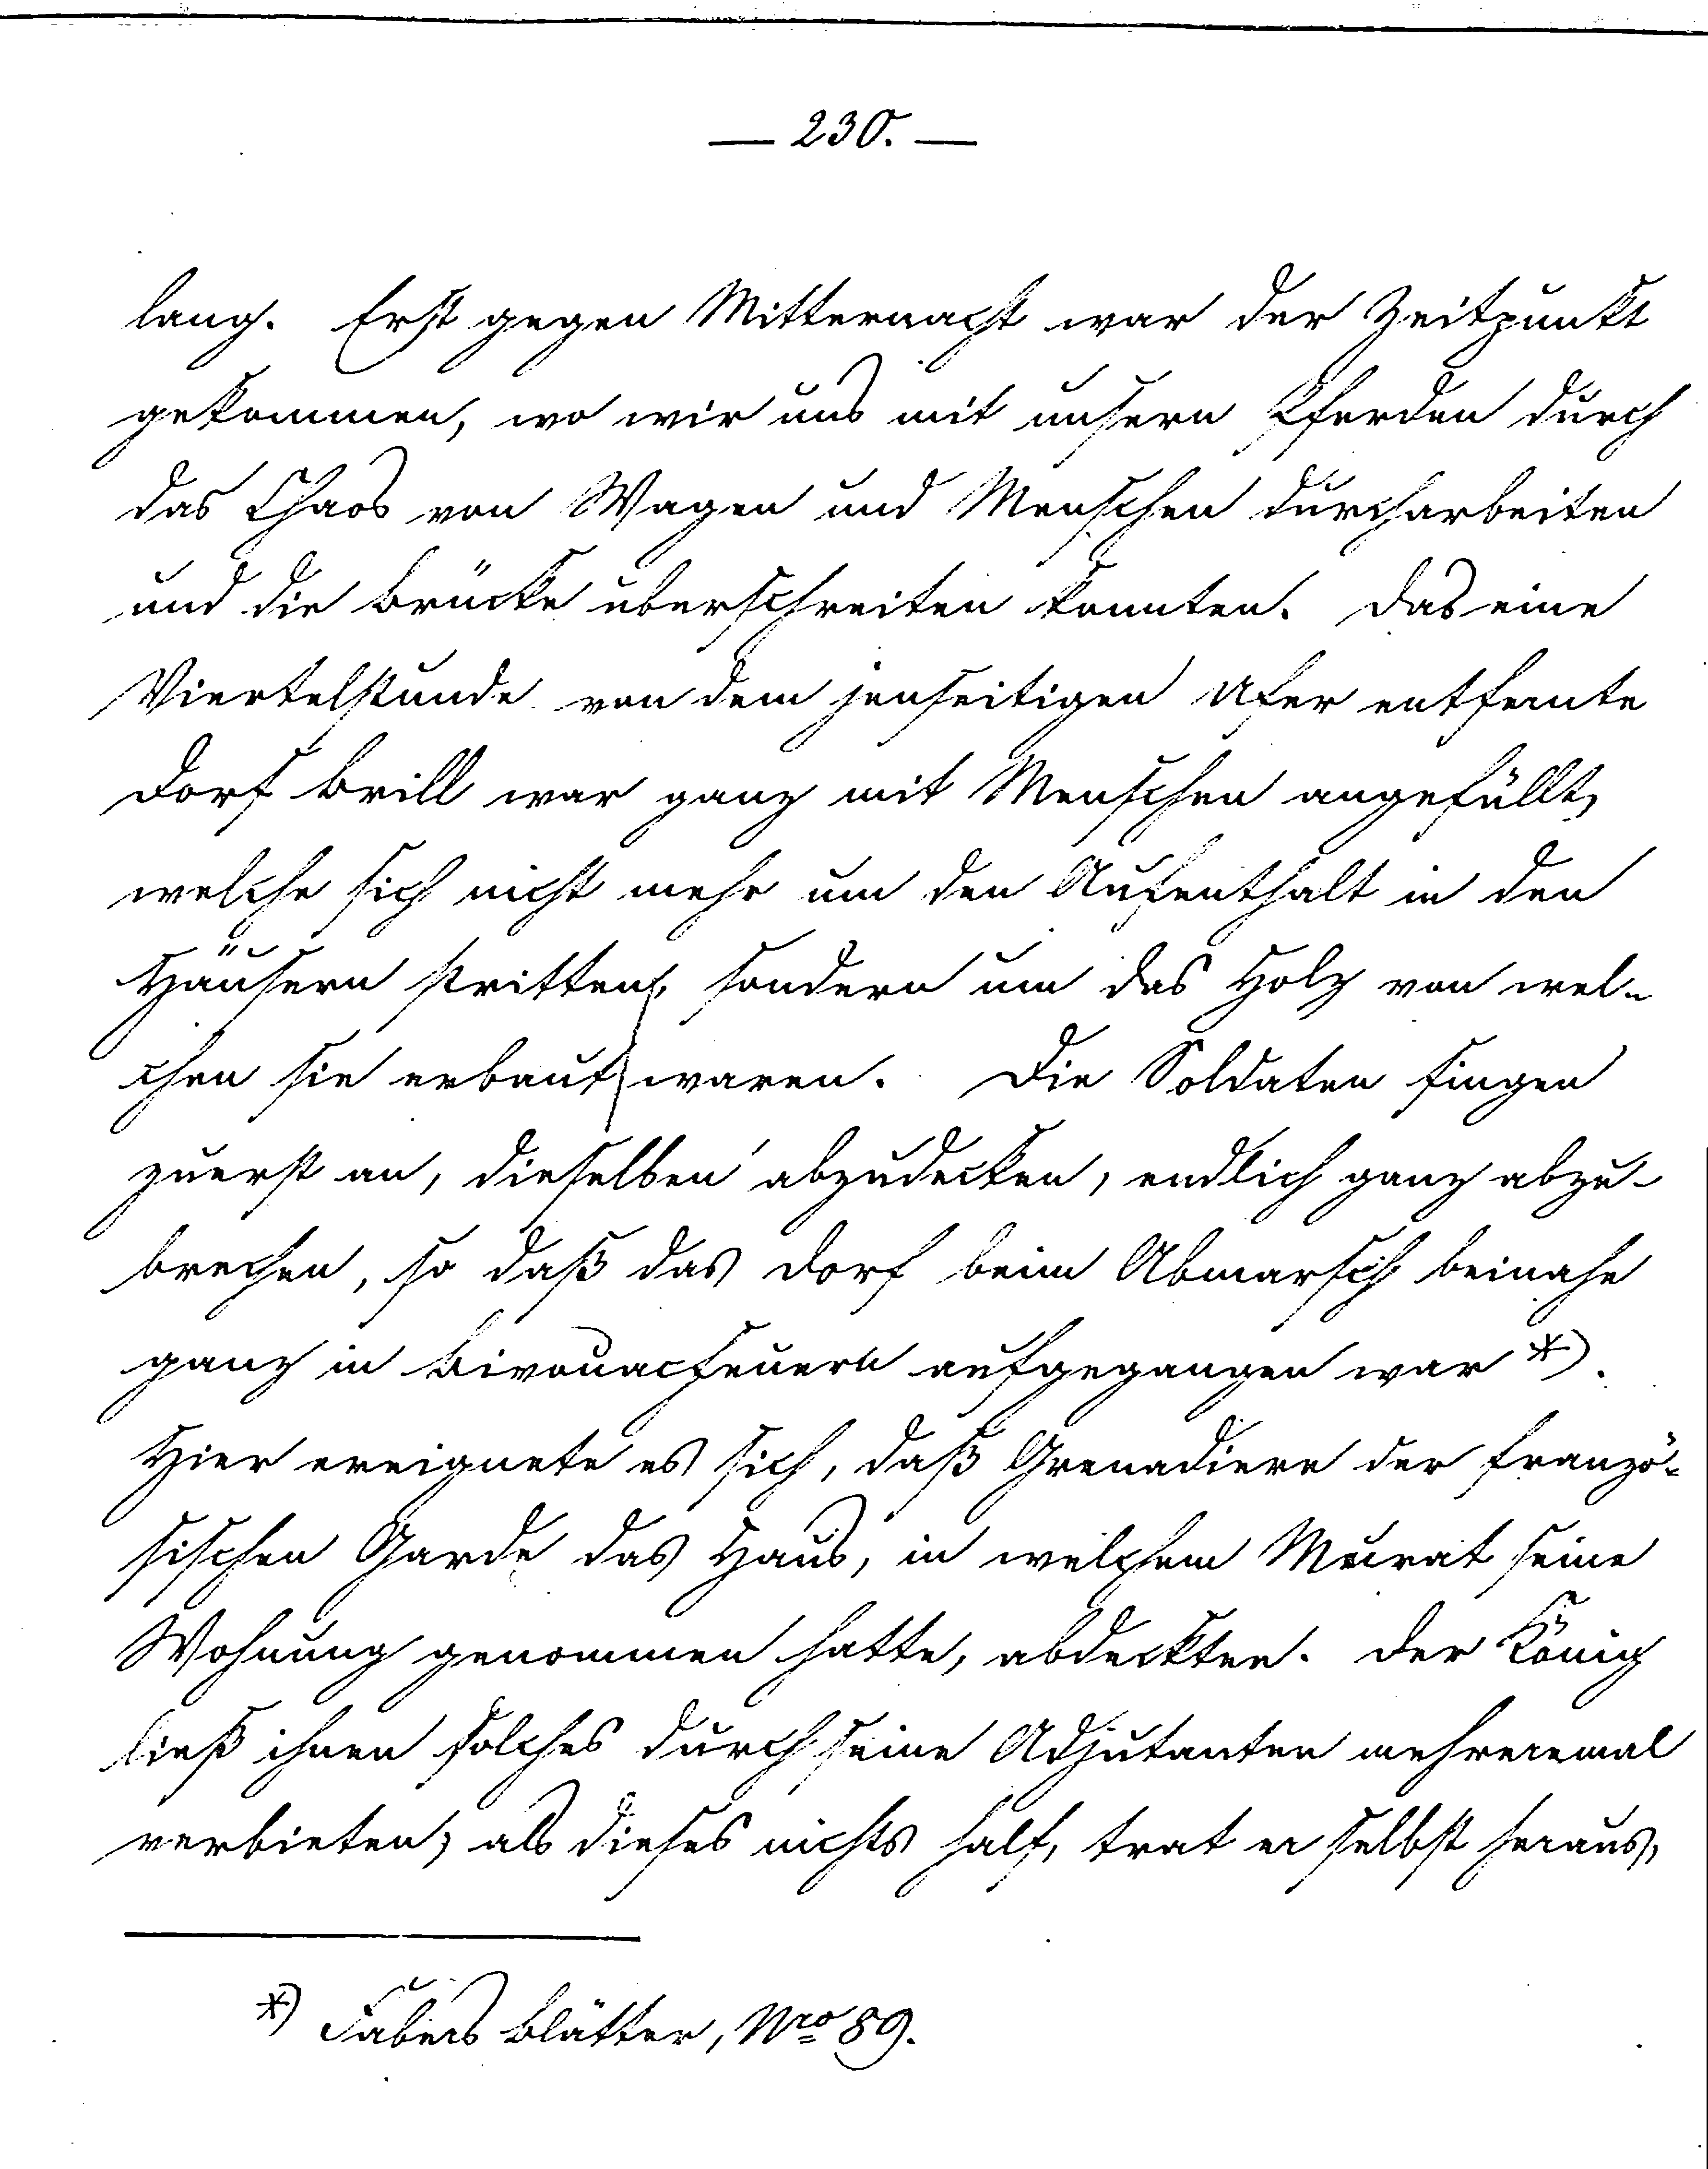 — 230. —
lang. Erst gegen Mitternacht war der Zeitpunkt
gekommen, wo wir uns mit unsern Pferden durch
das Chaos von Wagen und Menschen durcharbeiten
und die Brücke überschreiten konnten. Das eine
Viertelstunde von dem jenseitigen Ufer entfernte
Dorf Brill war ganz mit Menschen angefüllt,
welche sich nicht mehr um den Aufenthalt in den
Häusern stritten, sondern um das Holz von wel-
chen sie erbaut waren. Die Soldaten fingen
zuerst an, dieselben abzudecken, endlich ganz abzu-
brechen, so daß das Dorf beim Abmarsch beinahe
ganz in Bivouacfeuern aufgegangen war *).
Hier ereignete es sich, daß Grenadiere der franzö-
sischen Garde das Haus, in welchem Murat seine
Wohnung genommen hatte, abdeckten. Der König
ließ ihnen solches durch seine Adjutanten mehreremal
verbieten; als dieses nichts half, trat er selbst heraus,
*) Fabers Blätter, Nro 89.